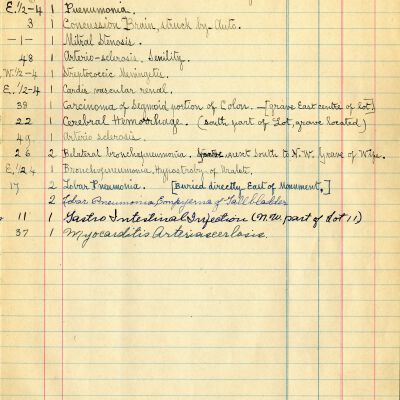 E. 1/2-4 1 Pneumonia.
3 1 Concussion Brain, struck by Auto.
-1- 1 Mitral Stenosis.
48 1 Arterio-sclerosis, Senility.
W. 1/2-4 1 Streptococcic Meningitis.
E. 1/2-4 1 Cardio vascular renal.
39 1 Carcinoma of Segmoid portion of Colon. - [grave East centre of lot]
22 1 Cerebral Hemorrhage. (south part of Lot, grave located)
49 1 Arterio sclerosis.
26 2 Bilateral bronchopneumonia. next South to N.W. Grave of Wife.
E. 1/2 24 1 Bronchopneumonia,
17 2 Lobar Pneumonia. [Buried directly East of Monument.]
2 Lobar Pneumonia Empyema of Gallbladder
11 1 Gastro Intestinal Infection (N.W. part of Lot 11)
37 1 Myocarditis Arteriosclerosis.